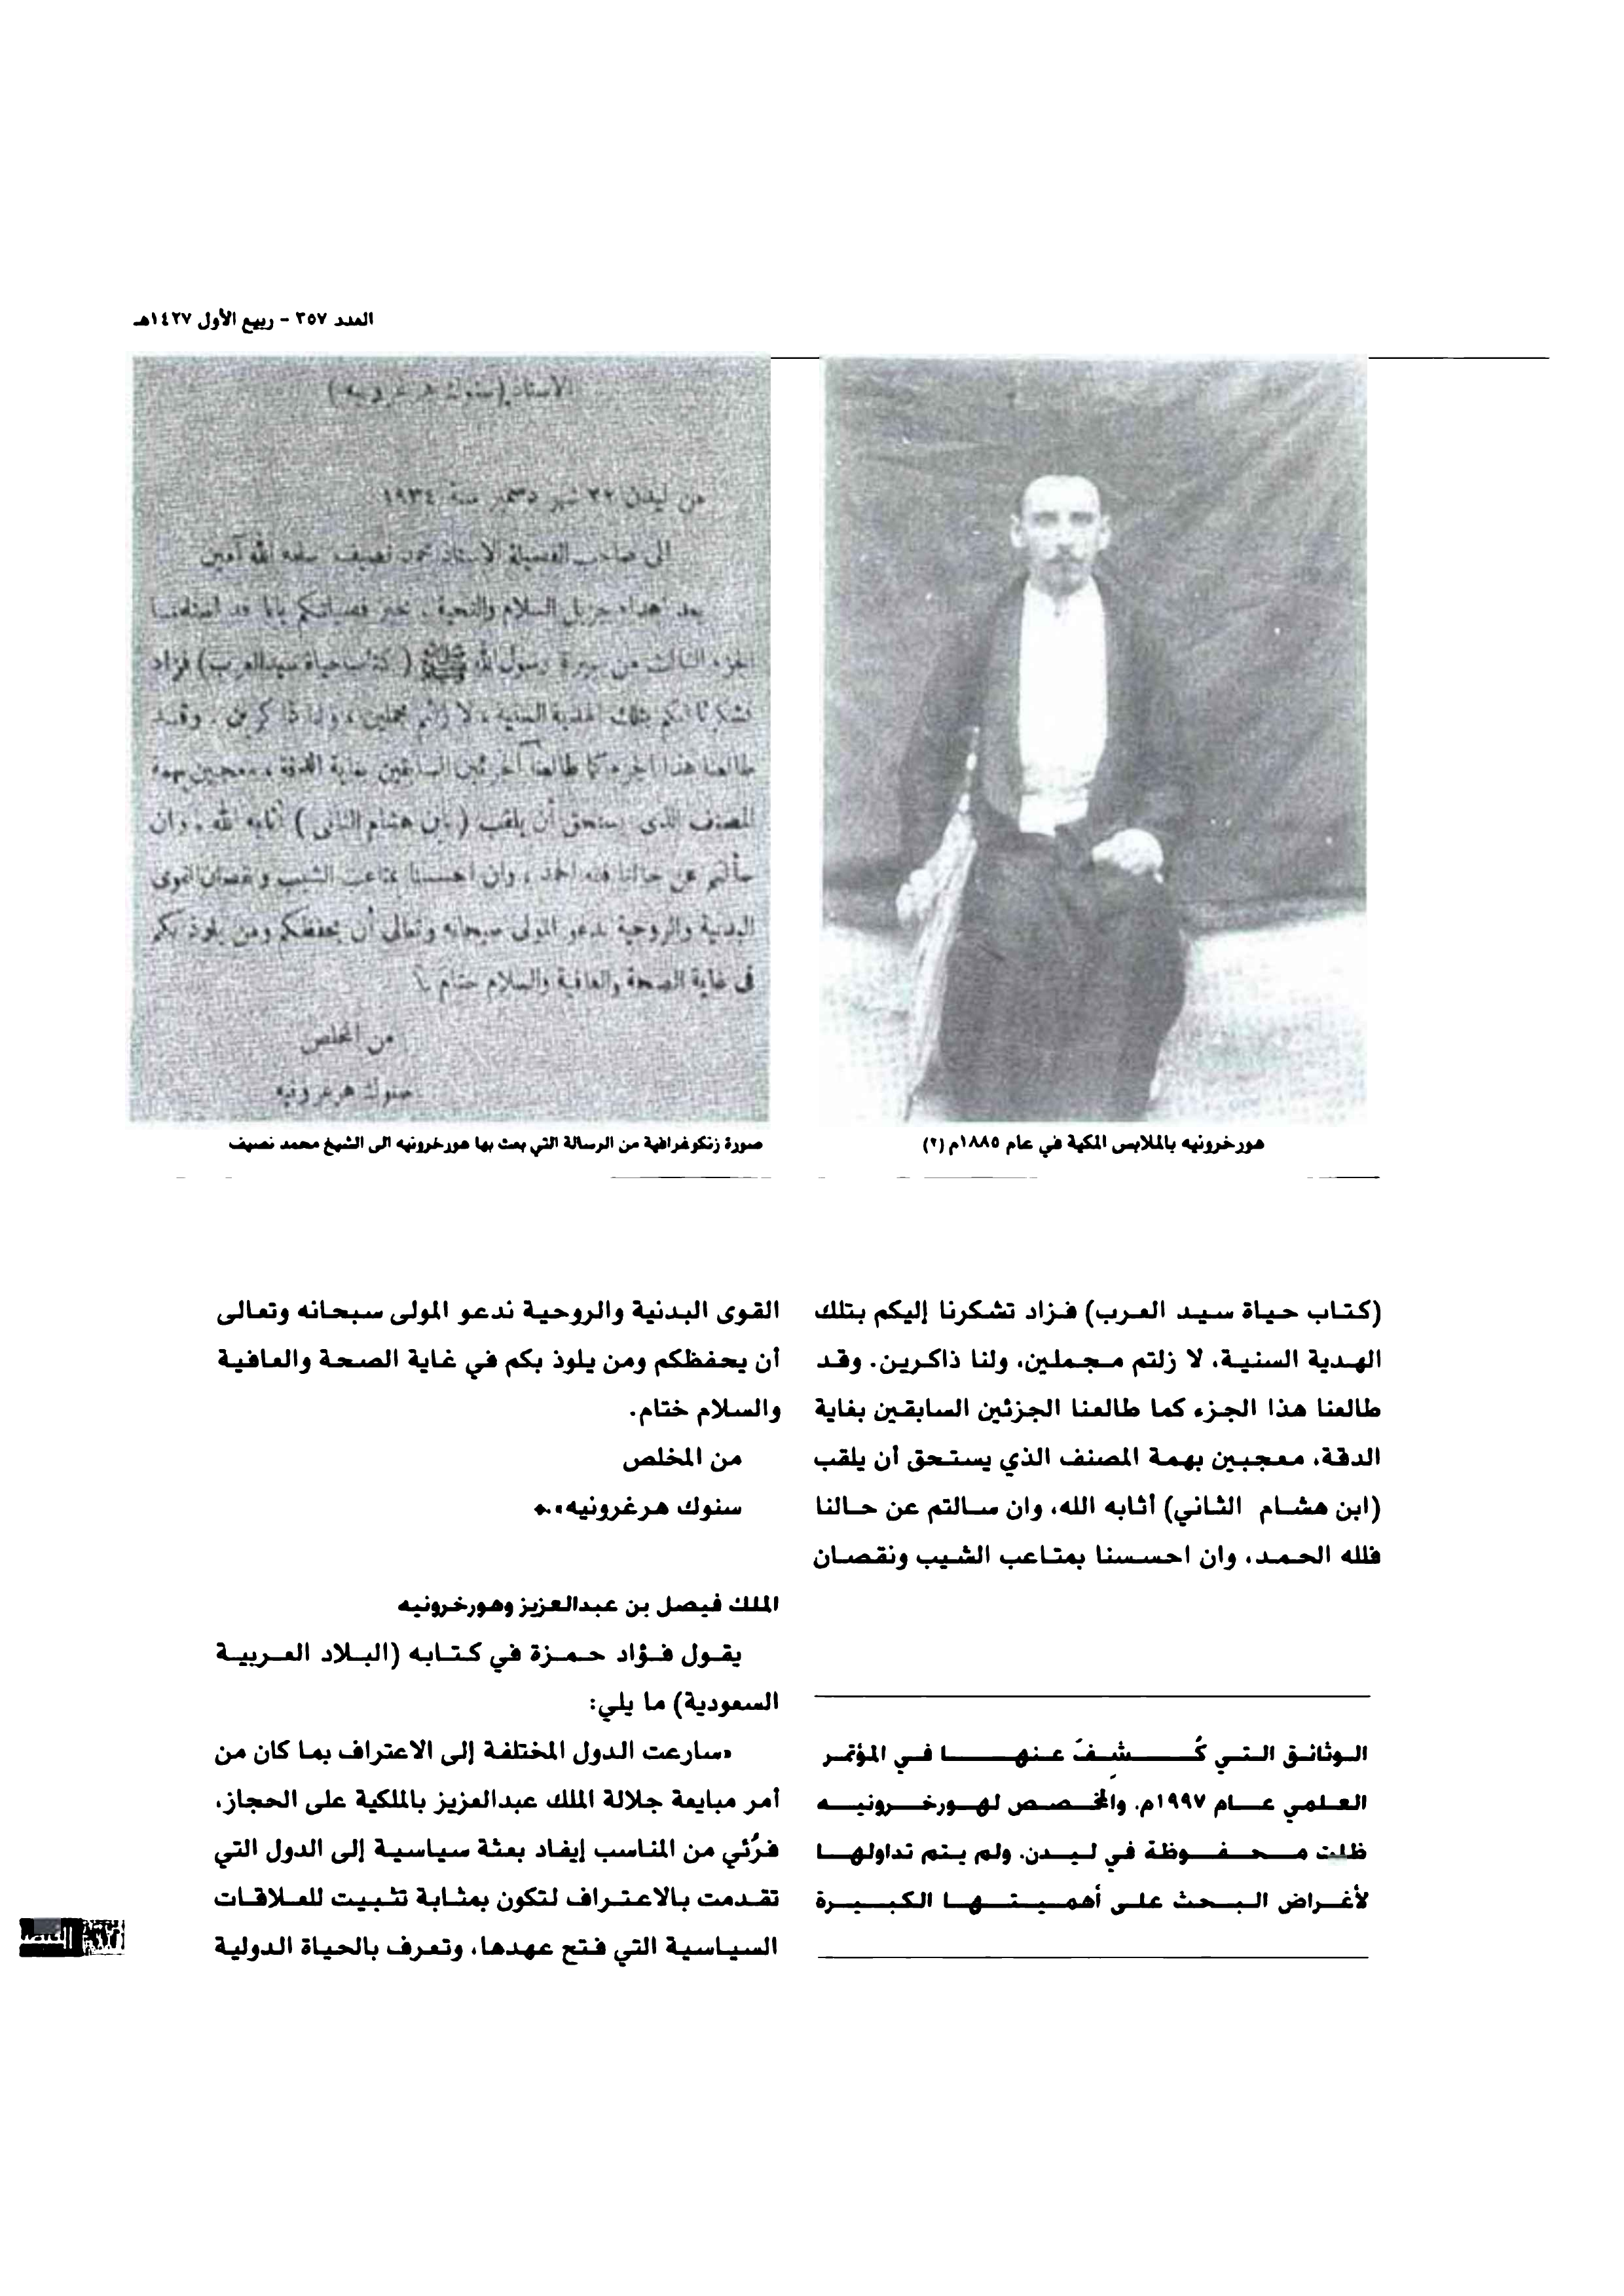 العدد ٣٥٧ - ربيع الأول ١٤٢٧هـ
الاستاذ (سنوك هرغرونيه)
من ليدن ٢٢ شهر دسمبر سنة ١٩٣٤
الى صاحب الفضيلة الاستاذ محمد نصيف سلمه الله آمين
بعد اهداء جزيل السلام والتحية، نخبر فضيلتكم باننا قد استلمنا
الجزء الثالث من سيرة رسول الله ﷺ (كتاب حياة سيد العرب) فزاد
تشكرنا اليكم بتلك الهدية السنية، لا زلتم مجملين، ولنا ذاكرين. وقد
طالعنا هذا الجزء كما طالعنا الجزئين السابقين بغاية الدقة، معجبين بهمة
المصنف الذى يستحق أن يلقب (بابن هشام الثانى) أثابه الله، وان
سألتم عن حالنا فلله الحمد، وان احسسنا بمتاعب الشيب ونقصان القوى
البدنية والروحية ندعو المولى سبحانه وتعالى أن يحفظكم ومن يلوذ بكم
فى غاية الصحة والعافية والسلام ختام
من المخلص
سنوك هرغرونيه
هورخرونيه بالملابس المكية في عام ١٨٨٥م (٢)
صورة زنكوغرافية من الرسالة التي بعث بها هورخرونيه الى الشيخ محمد نصيف
(كتاب حياة سيد العرب) فزاد تشكرنا إليكم بتلك
الهدية السنية، لا زلتم مجملين، ولنا ذاكرين. وقد
طالعنا هذا الجزء كما طالعنا الجزئين السابقين بغاية
الدقة، معجبين بهمة المصنف الذي يستحق أن يلقب
(ابن هشام الثاني) أثابه الله، وان سالتم عن حالنا
فلله الحمد، وان احسسنا بمتاعب الشيب ونقصان
الوثائق التي كُشِفَ عنها في المؤتمر
العلمي عام ١٩٩٧م، والمخصص لهورخرونيه
ظلت محفوظة في ليدن، ولم يتم تداولها
لأغراض البحث على أهميتها الكبيرة
القوى البدنية والروحية ندعو المولى سبحانه وتعالى
أن يحفظكم ومن يلوذ بكم في غاية الصحة والعافية
والسلام ختام.
من المخلص
سنوك هرغرونيه».
الملك فيصل بن عبدالعزيز وهورخرونيه
يقول فؤاد حمزة في كتابه (البلاد العربية
السعودية) ما يلي:
«سارعت الدول المختلفة إلى الاعتراف بما كان من
أمر مبايعة جلالة الملك عبدالعزيز بالملكية على الحجاز،
فرُئي من المناسب إيفاد بعثة سياسية إلى الدول التي
تقدمت بالاعتراف لتكون بمثابة تثبيت للعلاقات
السياسية التي فتح عهدها، وتعرف بالحياة الدولية